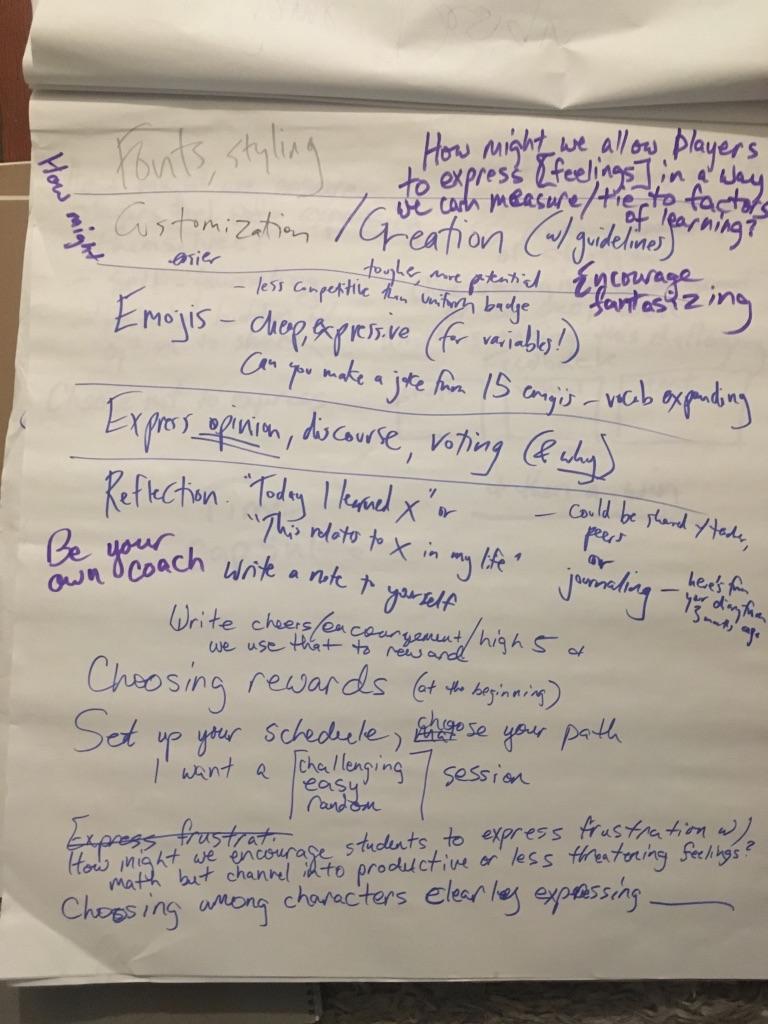 How might we allow players
to express [feelings] in a way
we can measure/tie to factors
of learning?
How might
Fonts, styling
Customization / Creation (w/ guidelines)
easier
tougher, more potential
Encourage
fantasizing
- less competitive than uniform badge
Emojis - cheap, expressive (for variables!)
Can you make a joke from 15 emojis - vocab expanding
Express opinion, discourse, voting (& why)
Reflection. "Today I learned X" or
"This relates to X in my life"
- could be shared
peers
or
journaling - here's from
your diary from
3 months ago
Be your
own coach
Write a note to yourself
Write cheers/encouragement/high 5 
we use that to reward
Choosing rewards (at the beginning)
Set up your schedule, choose your path
I want a [challenging
easy
random] session
Express frustrat.
How might we encourage students to express frustration w/
math but channel into productive or less threatening feelings?
Choosing among characters clearly expressing ____